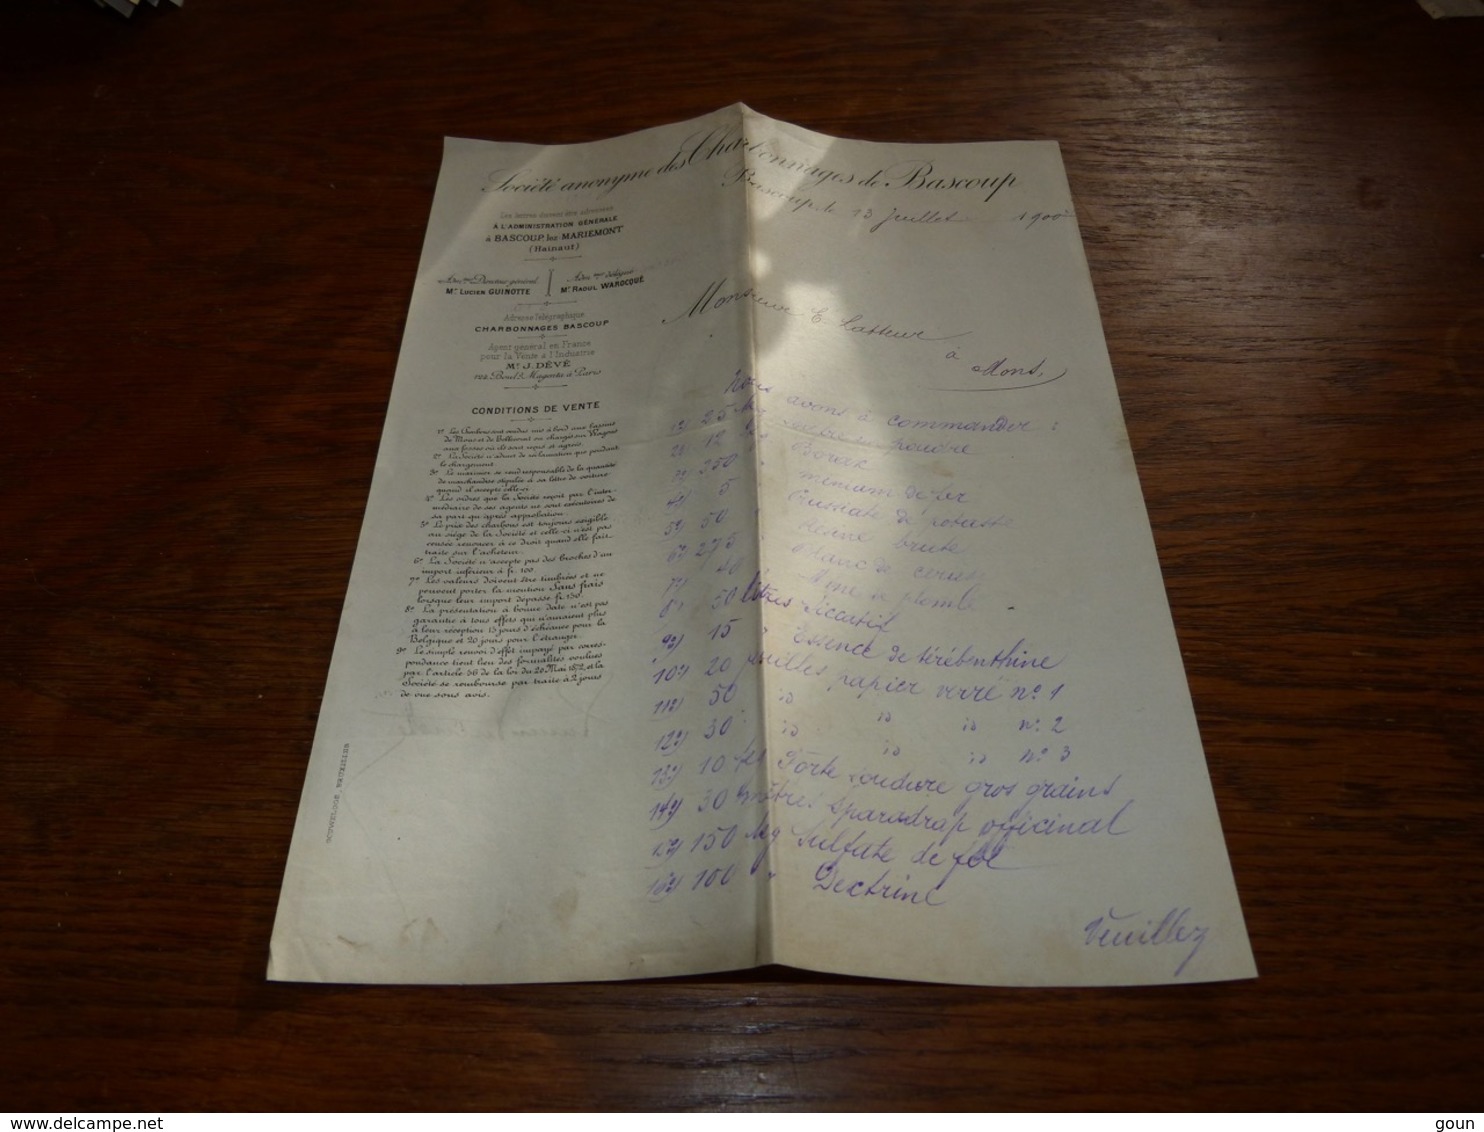 Société anonyme des Charbonnages de Bascoup
Bascoup, le 13 juillet 1900
Les lettres doivent être adressées
À L'ADMINISTRATION GÉNÉRALE
à BASCOUP, lez-MARIEMONT
(Hainaut)
Adm. Directeur général
Mr LUCIEN GUINOTTE
Adm. délégué
Mr RAOUL WAROCQUÉ
Adresse Télégraphique
CHARBONNAGES BASCOUP
Agent général en France
pour la Vente à l'Industrie
Mr J. DÉVÉ
Boul.d Magenta à Paris
CONDITIONS DE VENTE
1º Les Charbons sont rendus mis à bord aux bassins
de Mons et de Bellecourt ou chargés sur Wagons
aux fosses où ils sont reçus et agréés.
2º La Société n'admet de réclamation que pendant
le chargement.
3º Le marinier se rend responsable de la quantité
de marchandises stipulée à sa lettre de voiture
quand il accepte celle-ci
4º Les ordres que la Société reçoit par l'inter-
médiaire de ses agents ne sont exécutoires de
sa part qu'après approbation.
5º Le prix des charbons est toujours exigible
au siège de la Société et celle-ci n'est pas
censée renoncer à ce droit quand elle fait
traite sur l'acheteur.
6º La Société n'accepte pas des broches d'un
import inférieur à fr. 100.
7º Les valeurs doivent être timbrées et ne
peuvent porter la mention Sans frais
lorsque leur import dépasse fr. 150.
8º La présentation à bonne date n'est pas
garantie à tous effets qui n'auraient plus
à leur réception 15 jours d'échéance pour la
Belgique et 20 jours pour l'étranger.
9º Le simple renvoi d'effet impayé par corres-
pondance tient lieu des formalités voulues
par l'article 56 de la loi du 20 Mai 1872, et la
Société se rembourse par traite à 2 jours
de vue sans avis.
Monsieur E. Lasseur
à
Mons,
Nous avons à commander :
1º) 25 Kg en poudre
2º) 12 Kgs Borax
3º) 250 " minium de fer
4º) 5 " Prussiate de potasse
5º) 50 " Résine brute
6º) 275 " Blanc de céruse
7º) 40 " Mine de plomb
8º) 50 litres siccatif
9º) 15 " Essence de térébenthine
10º) 20 feuilles papier verré nº 1
11º) 50 id id id nº 2
12º) 30 id id id nº 3
13º) 10 soudure gros grains
14º) 30 mètres sparadrap officinal
15º) 150 Kg Sulfate de fer
16º) 100 " Dextrine
Veuillez
goun